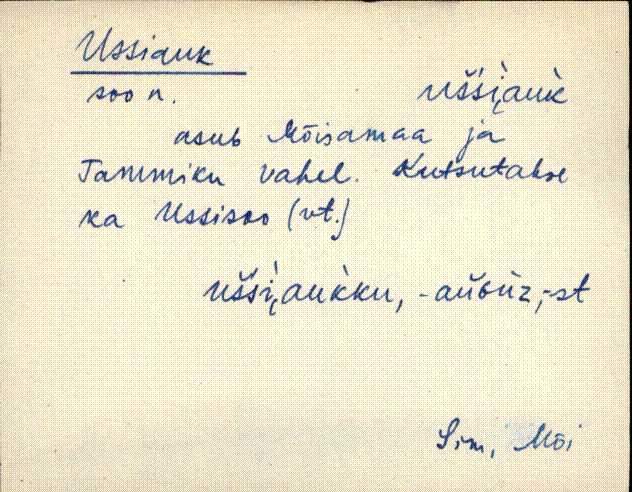 Ussiauk
soo n. ušši̮auk
asub Mõisamaa ja
Tammiku vahel. Kutsutakse
ka Ussisoo (vt.)
ušši̮aukku, -auɢuz, -st
Sim, Mõi